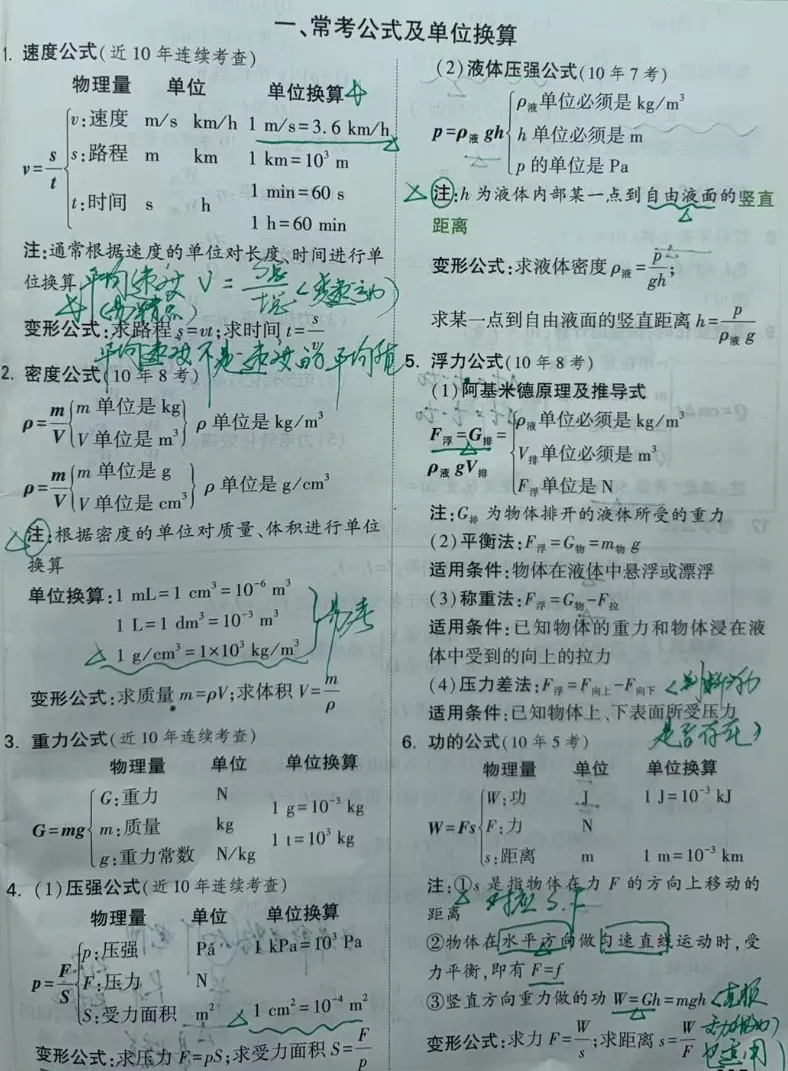 一、常考公式及单位换算
1. 速度公式(近10年连续考查)
物理量 单位 单位换算
v=s/t
v:速度 m/s km/h 1 m/s=3.6 km/h
s:路程 m km 1 km=10³ m
t:时间 s h 1 min=60 s
1 h=60 min
注:通常根据速度的单位对长度、时间进行单
位换算
平均速度 V=
(易错点)
变形公式:求路程 s=vt;求时间 t=s/v
平均速度不是速度的平均值
2. 密度公式(10年8考)
ρ=m/V {m 单位是 kg
V 单位是 m³} ρ 单位是 kg/m³
ρ=m/V {m 单位是 g
V 单位是 cm³} ρ 单位是 g/cm³
注:根据密度的单位对质量、体积进行单位
换算
单位换算:1 mL=1 cm³=10⁻⁶ m³
1 L=1 dm³=10⁻³ m³
1 g/cm³=1×10³ kg/m³
易考
变形公式:求质量 m=ρV;求体积 V=m/ρ
3. 重力公式(近10年连续考查)
物理量 单位 单位换算
G=mg
G:重力 N
m:质量 kg 1 g=10⁻³ kg
g:重力常数 N/kg 1 t=10³ kg
4. (1)压强公式(近10年连续考查)
物理量 单位 单位换算
p=F/S
p:压强 Pa 1 kPa=10³ Pa
F:压力 N
S:受力面积 m² 1 cm²=10⁻⁴ m²
变形公式:求压力 F=pS;求受力面积 S=F/p
(2)液体压强公式(10年7考)
p=ρ液 gh
ρ液单位必须是 kg/m³
h 单位必须是 m
p 的单位是 Pa
注:h 为液体内部某一点到自由液面的竖直
距离
变形公式:求液体密度 ρ液=p/gh;
求某一点到自由液面的竖直距离 h=p/ρ液 g
5. 浮力公式(10年8考)
(1)阿基米德原理及推导式
F浮=G排=
ρ液 gV排
ρ液单位必须是 kg/m³
V排单位必须是 m³
F浮单位是 N
注:G排 为物体排开的液体所受的重力
(2)平衡法:F浮=G物=m物 g
适用条件:物体在液体中悬浮或漂浮
(3)称重法:F浮=G物-F拉
适用条件:已知物体的重力和物体浸在液
体中受到的向上的拉力
(4)压力差法:F浮=F向上-F向下
(判断浮力
是否存在)
适用条件:已知物体上、下表面所受压力
6. 功的公式(10年5考)
物理量 单位 单位换算
W=Fs
W:功 J 1 J=10⁻³ kJ
F:力 N
s:距离 m 1 m=10⁻³ km
注:①s 是指物体在力 F 的方向上移动的
距离
对应 S、F
②物体在水平方向做匀速直线运动时,受
力平衡,即有 F=f
③竖直方向重力做的功 W=Gh=mgh
也适用)
变形公式:求力 F=W/s;求距离 s=W/F